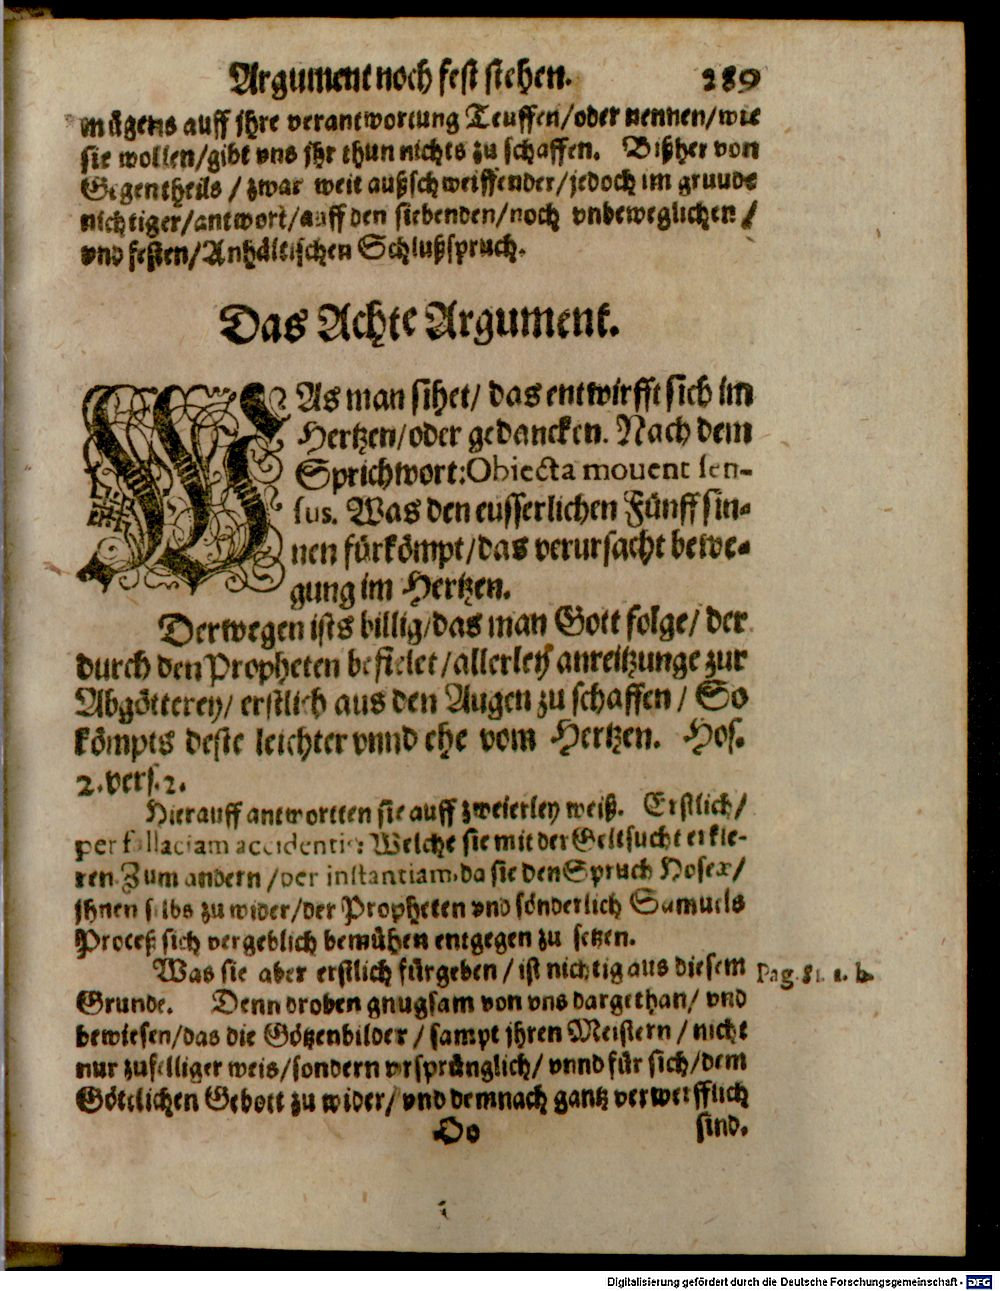 Argument noch fest stehen. 289
mögens auff jhre verantwortung Teuffen/oder nennen/wie
sie wollen/gibt vns jhr thun nichts zu schaffen. Bißher von
Gegentheils / zwar weit außschweiffender/jedoch im grunde
nichtiger/antwort/auff den siebenden/noch vnbeweglichen /
vnd festen/Anhältischen Schlußspruch.
Das Achte Argument.
WAs man sihet/ das entwirfft sich im
Hertzen/oder gedancken. Nach dem
Sprichwort: Obiecta mouent sen-
sus. Was den eusserlichen Fünff sin-
nen fürkömpt/das verursacht bewe-
gung im Hertzen.
Derwegen ists billig/das man Gott folge/ der
durch den Propheten befielet/allerley anreitzunge zur
Abgötterey/ erstlich aus den Augen zu schaffen / So
kömpts deste leichter vnnd ehe vom Hertzen. Hos.
2. vers. 2.
Hierauff antwortten sie auff zweierley weiß. Erstlich/
per fallaciam accidentis: Welche sie mit der Geltsucht erkle-
ren Zum andern / per instantiam, da sie den Spruch Hoseæ/
jhnen selbs zu wider/der Propheten vnd sönderlich Samuels
Proceß sich vergeblich bemühen entgegen zu setzen.
Was sie aber erstlich fürgeben / ist nichtig aus diesem Pag. 81. a. b.
Grunde. Denn droben gnugsam von vns dargethan/ vnd
bewiesen/das die Götzenbilder / sampt jhren Meistern / nicht
nur zufelliger weis/sondern vrsprünglich/ vnnd für sich/dem
Göttlichen Gebott zu wider/ vnd demnach gantz verwerfflich
Oo sind.
Digitalisierung gefördert durch die Deutsche Forschungsgemeinschaft - DFG